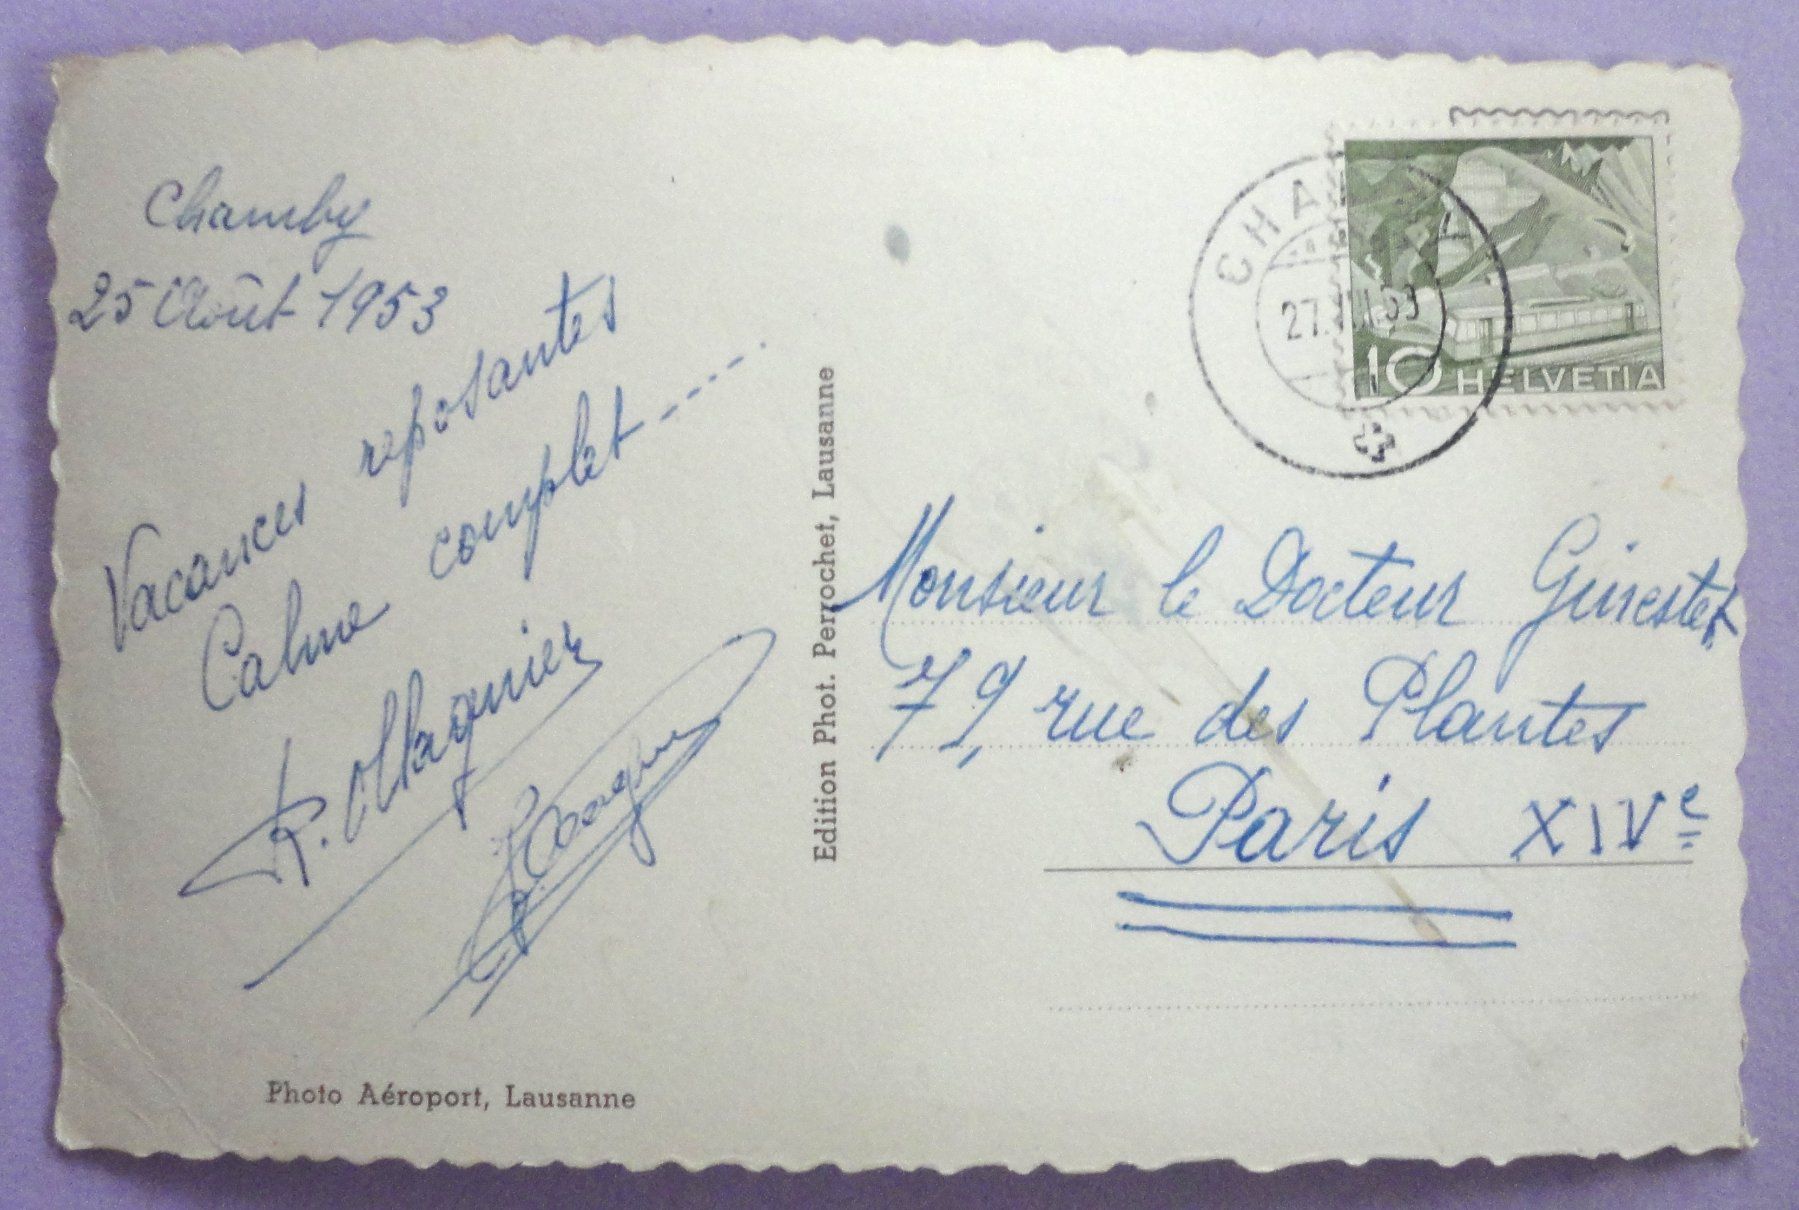 Chamby
25 Août 1953
Vacances reposantes
Calme complet ----.
Edition Phot. Perrochet, Lausanne
Photo Aéroport, Lausanne
CHA
27.
10 HELVETIA
Monsieur le Docteur Ginestet
79 rue des Plantes
Paris XIVe